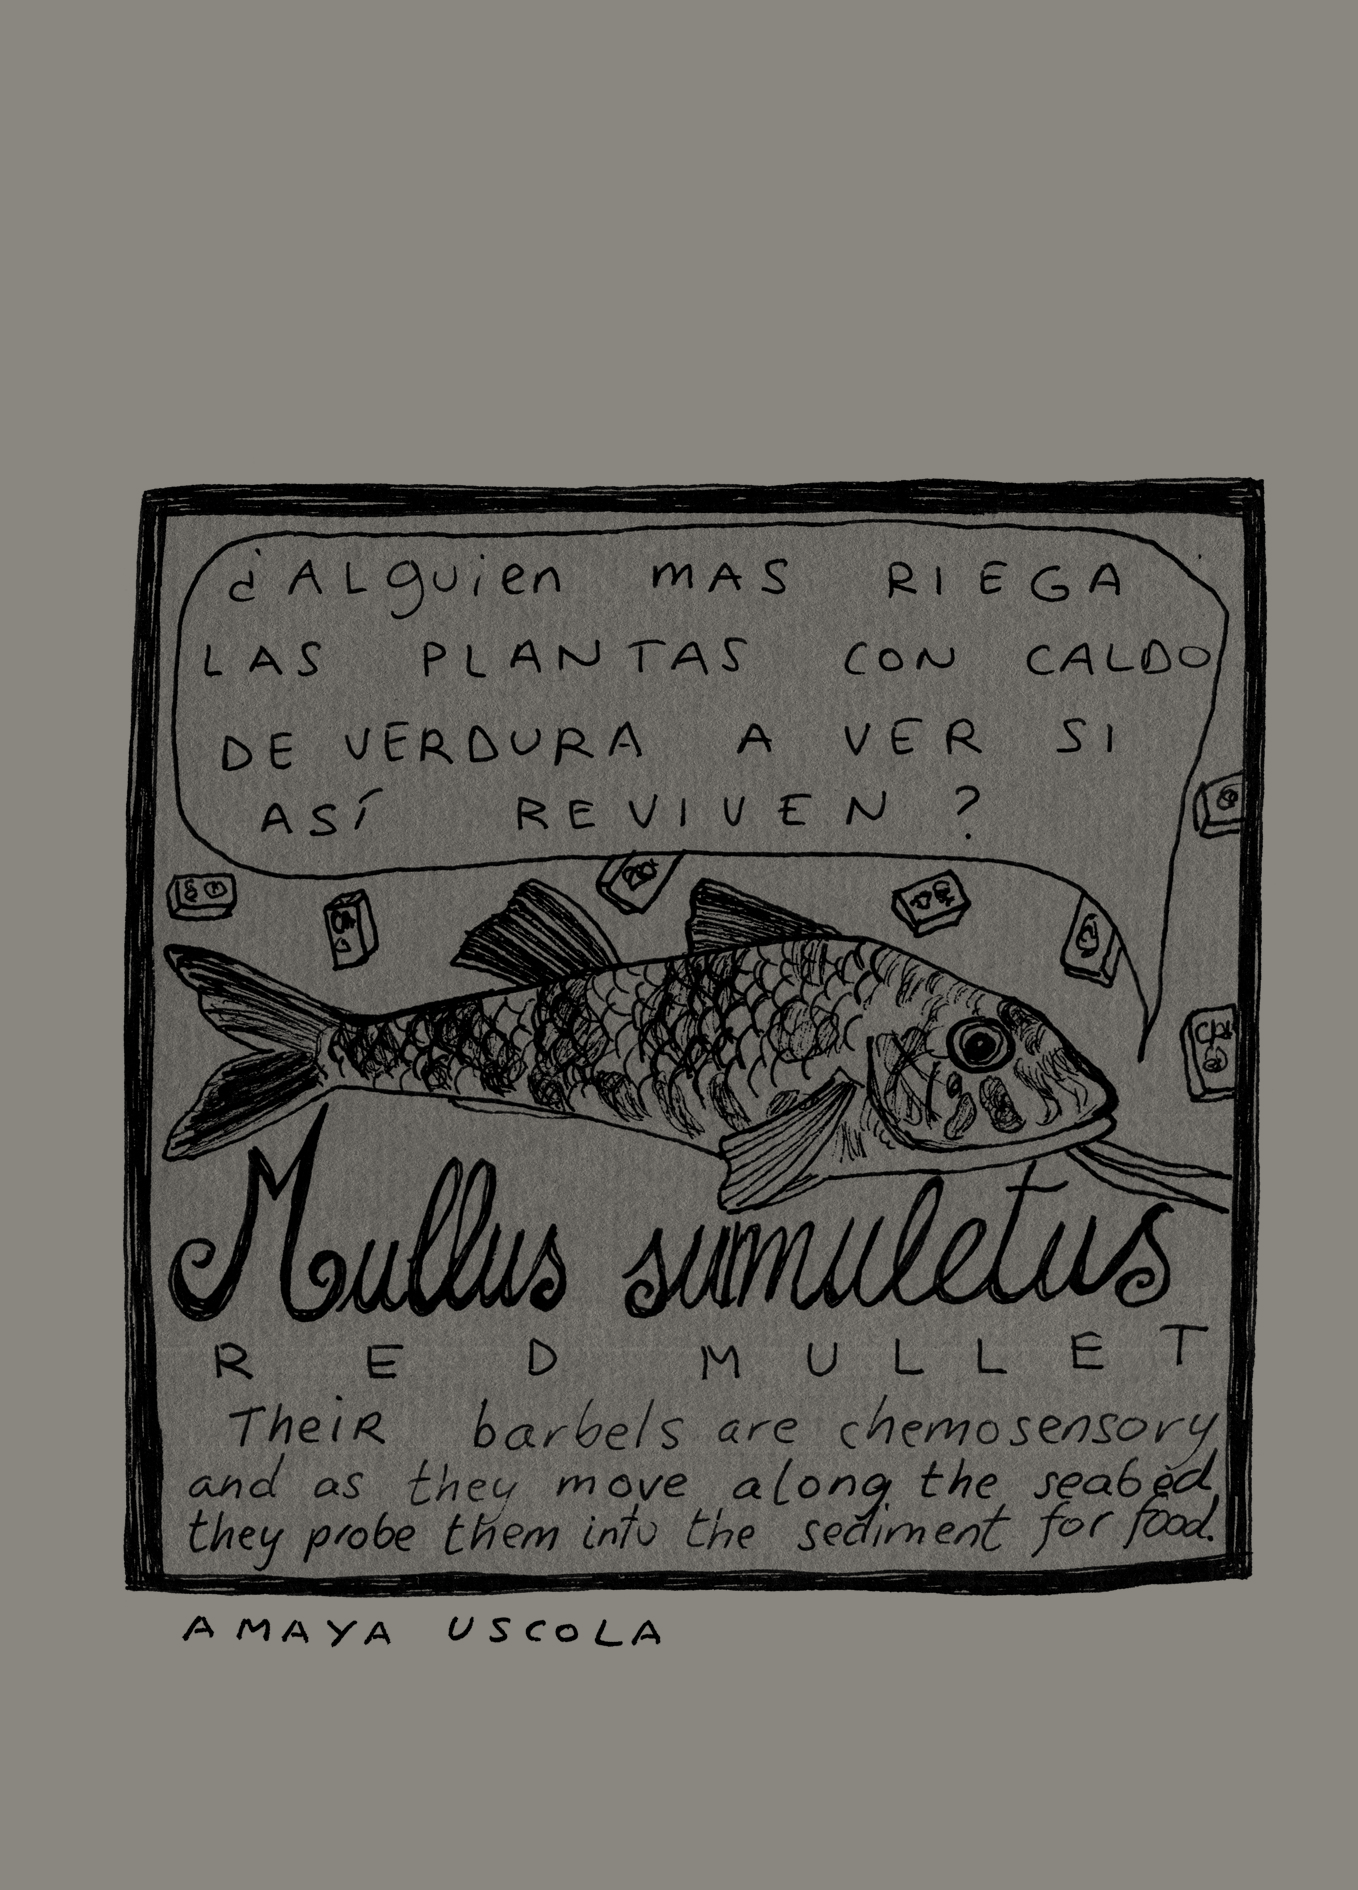 ¿ALguien mAS RIEGA
LAS PLANTAS CON CALDO
DE VERDURA A VER SI
ASÍ REVIVEN?
Mullus sumuletus
RED MULLET
TheiR barbels are chemosensory
and as they move along the seabed
they probe them into the sediment for food.
AMAYA USCOLA